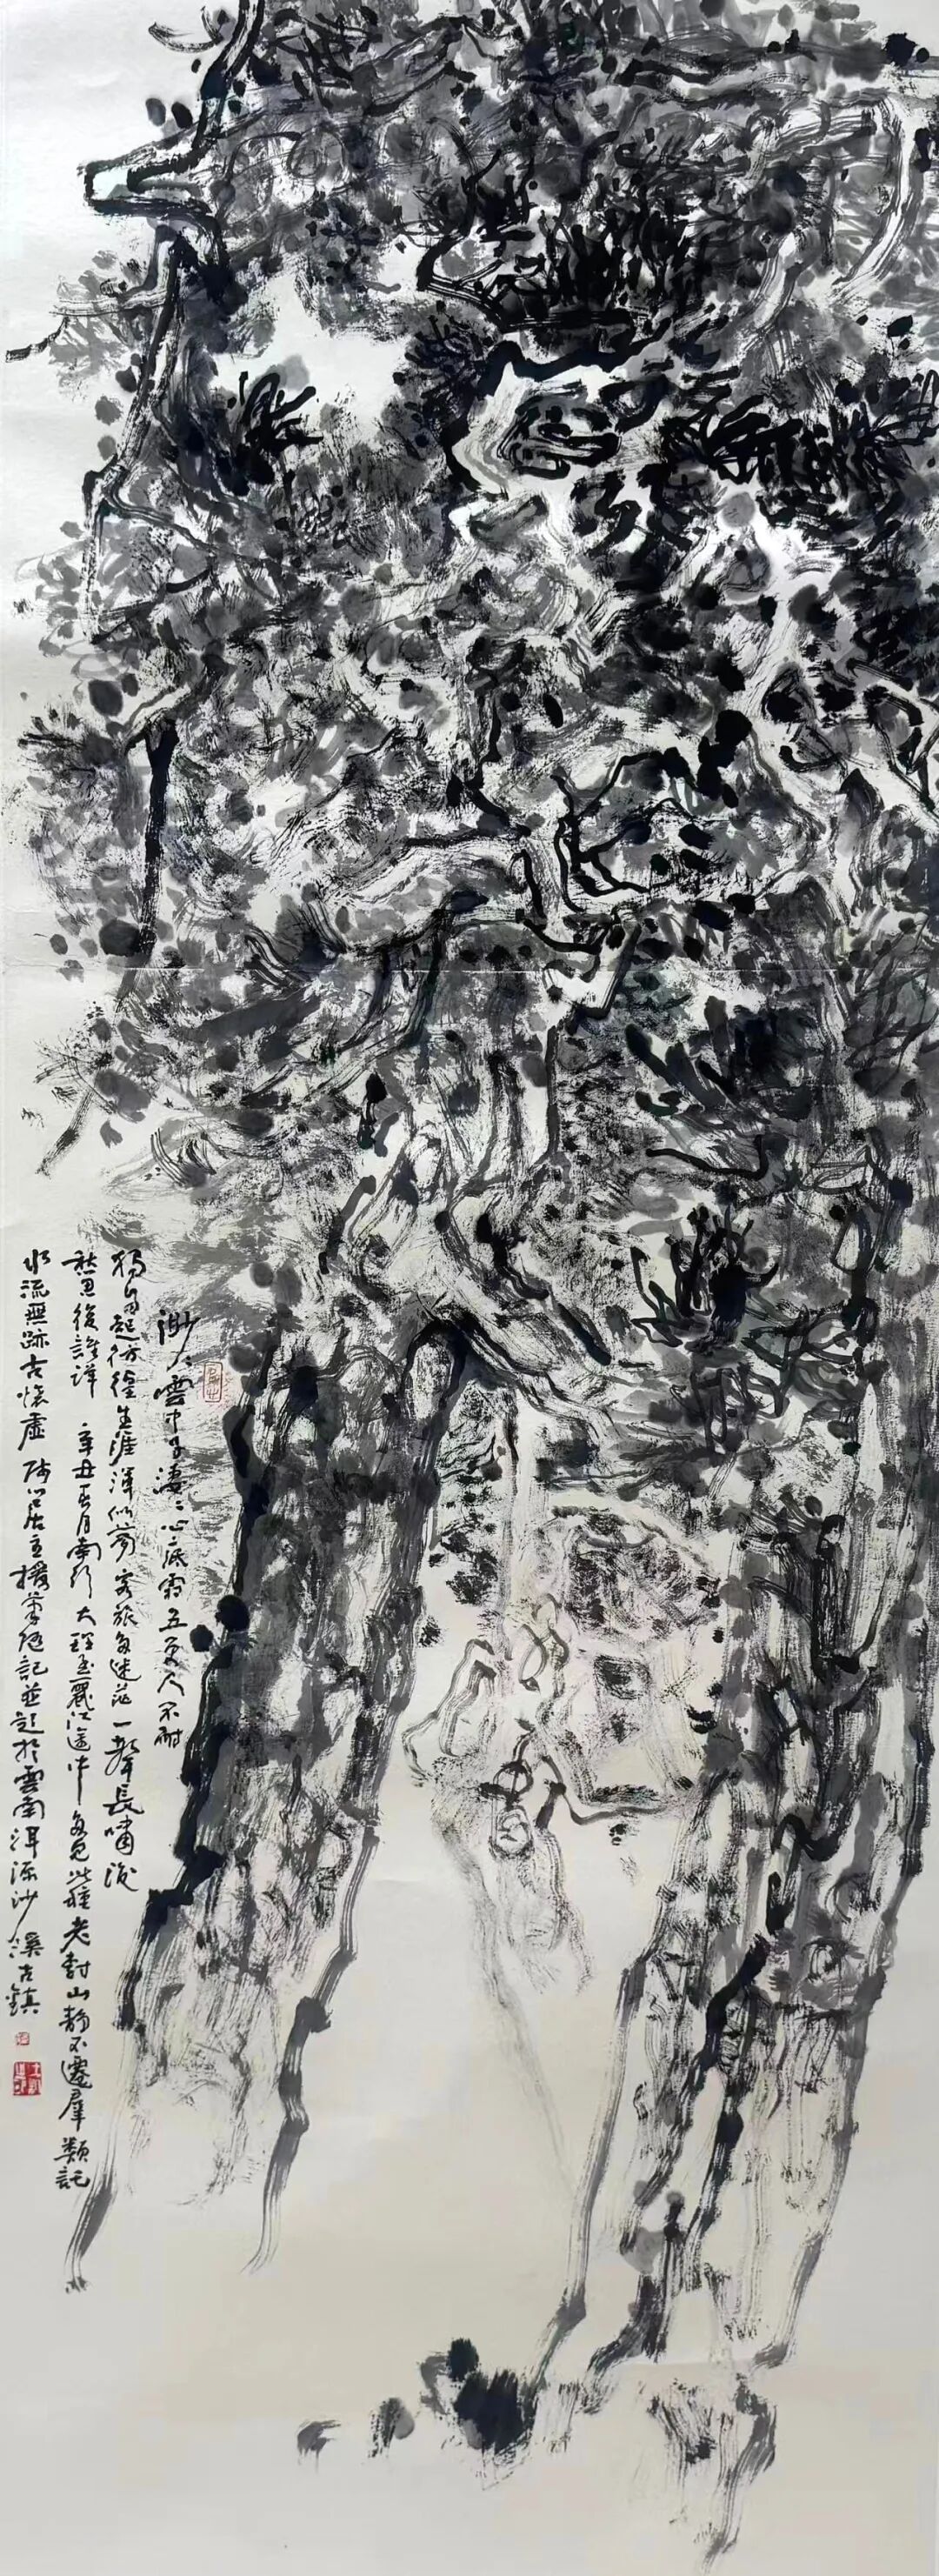 渺〻雲中子淒〻心底霜五更人不耐
獨自起彷徨生涯渾似夢客旅多迷茫一聲長嘯後
愁思復誰詳 辛丑五月南行大理至麗江途中多見此種老樹山靜不遷羣類託
水流無跡古懷虛 居主援筆隨記並題於雲南洱源沙溪古鎮